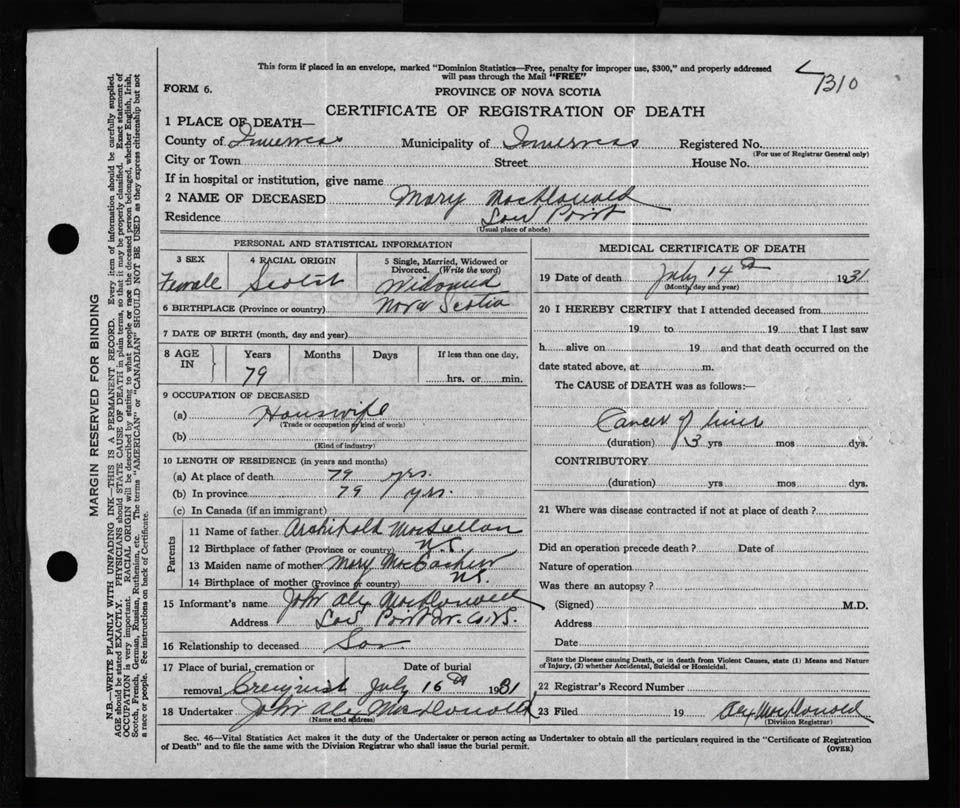 This form if placed in an envelope, marked "Dominion Statistics—Free, penalty for improper use, $300," and properly addressed
will pass through the Mail "FREE"
7310
FORM 6.
PROVINCE OF NOVA SCOTIA
CERTIFICATE OF REGISTRATION OF DEATH
1 PLACE OF DEATH—
County of Inverness Municipality of Inverness Registered No.
(For use of Registrar General only)
City or Town Street House No.
If in hospital or institution, give name
2 NAME OF DECEASED Mary MacDonald
Residence Low Point
(Usual place of abode)
PERSONAL AND STATISTICAL INFORMATION
3 SEX
Female
4 RACIAL ORIGIN
Scotch
5 Single, Married, Widowed or
Divorced. (Write the word)
Widowed
6 BIRTHPLACE (Province or country) Nova Scotia
7 DATE OF BIRTH (month, day and year)
8 AGE
IN
Years
79
Months
Days
If less than one day,
hrs. or min.
9 OCCUPATION OF DECEASED
(a) Houswife
(Trade or occupation or kind of work)
(b)
(Kind of industry)
10 LENGTH OF RESIDENCE (in years and months)
(a) At place of death 79 yrs.
(b) In province 79 yrs.
(c) In Canada (if an immigrant)
Parents
11 Name of father Archibald MacLellan
12 Birthplace of father (Province or country) N.S.
13 Maiden name of mother Mary MacEachen
14 Birthplace of mother (Province or country) N.S.
15 Informant's name John Alex MacDonald
Address Low Point Inv. Co. N.S.
16 Relationship to deceased Son
17 Place of burial, cremation or Date of burial
removal Creignish July 16th 1931
18 Undertaker John Alex MacDonald
(Name and address)
MEDICAL CERTIFICATE OF DEATH
19 Date of death July 14th 1931
(Month, day and year)
20 I HEREBY CERTIFY that I attended deceased from
19 to 19 that I last saw
h alive on 19 and that death occurred on the
date stated above, at m.
The CAUSE of DEATH was as follows:—
Cancer of liver
(duration) 3 yrs mos dys.
CONTRIBUTORY
(duration) yrs mos dys.
21 Where was disease contracted if not at place of death ?
Did an operation precede death ? Date of
Nature of operation
Was there an autopsy ?
(Signed) M.D.
Address
Date
State the Disease causing Death, or in death from Violent Causes, state (1) Means and Nature
of Injury, (2) whether Accidental, Suicidal or Homicidal.
22 Registrar's Record Number
23 Filed 19 Alex MacDonald
(Division Registrar)
Sec. 46—Vital Statistics Act makes it the duty of the Undertaker or person acting as Undertaker to obtain all the particulars required in the "Certificate of Registration
of Death" and to file the same with the Division Registrar who shall issue the burial permit. (OVER)
MARGIN RESERVED FOR BINDING
N.B.—WRITE PLAINLY WITH UNFADING INK—THIS IS A PERMANENT RECORD. Every item of information should be carefully supplied.
AGE should be stated EXACTLY. PHYSICIANS should STATE CAUSE OF DEATH in plain terms, so that it may be properly classified. Exact statement of
OCCUPATION is very important. RACIAL ORIGIN will be described by stating to what people or race the deceased person belonged, whether English, Irish,
Scotch, French, German, Russian, Ruthenian, etc. The terms "AMERICAN" or "CANADIAN" SHOULD NOT BE USED as they express citizenship but not
a race or people. See instructions on back of Certificate.